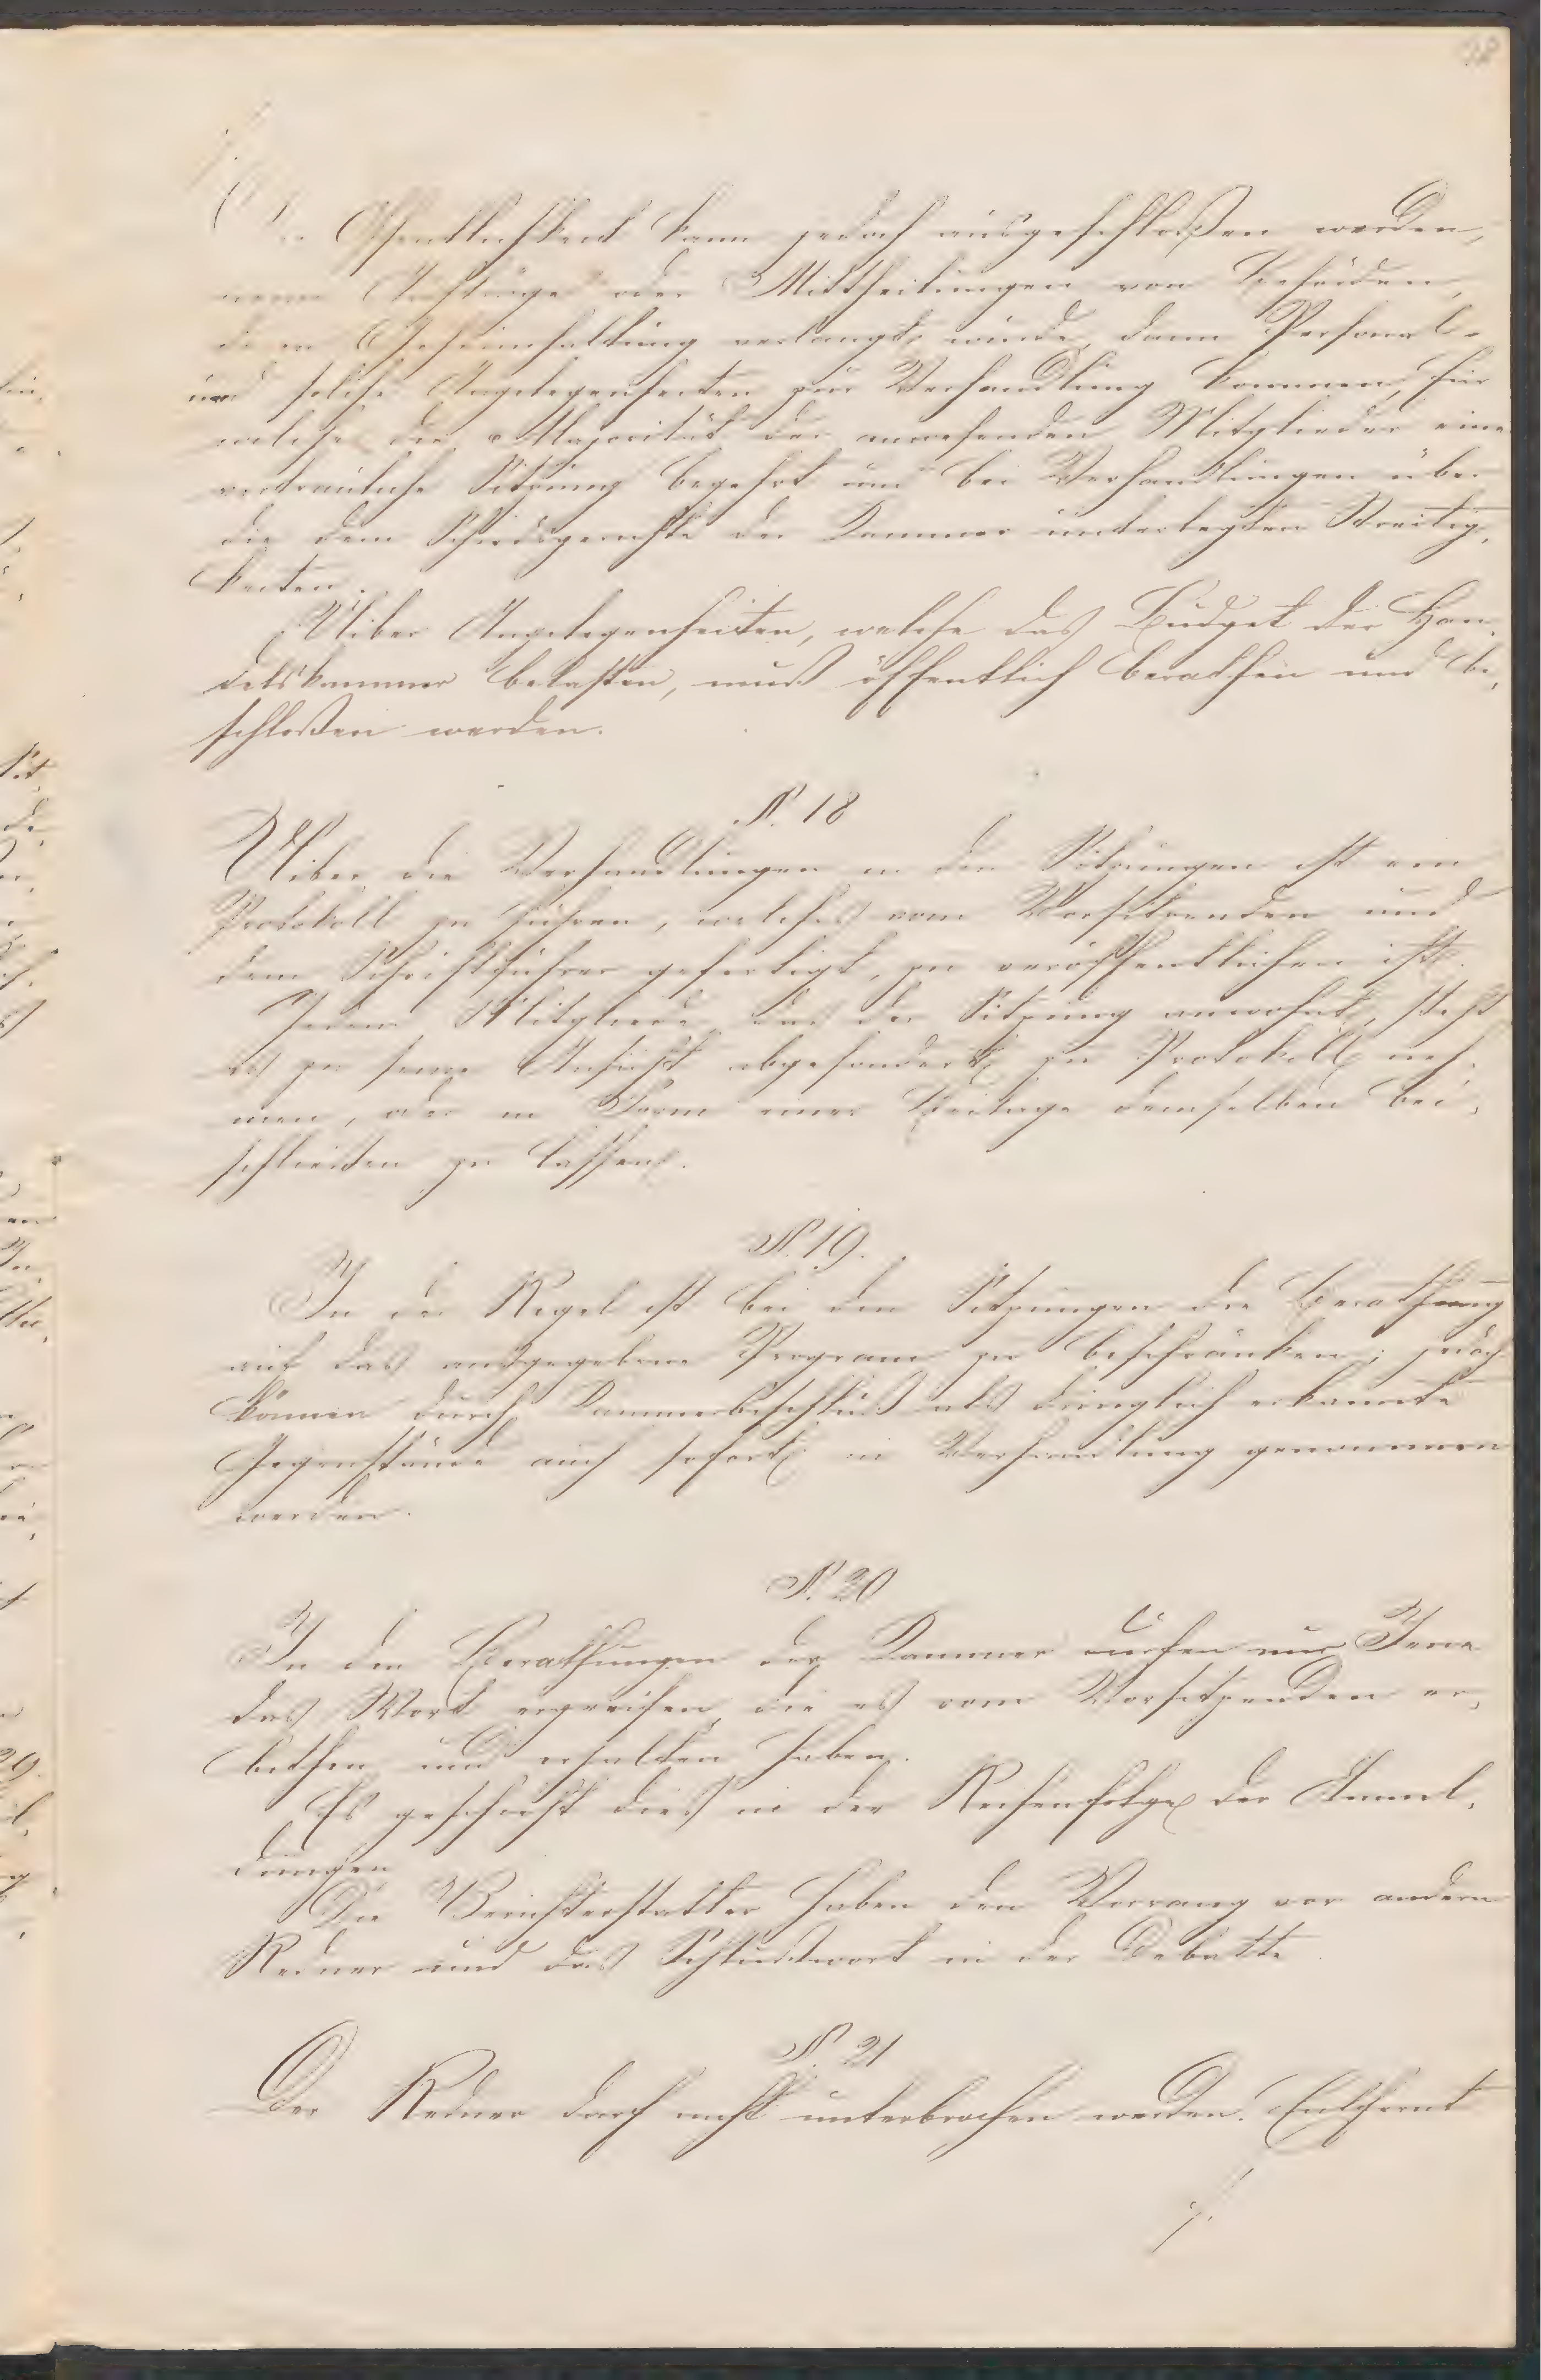 Öffentlichkeit kann jedoch ausgeschloßen werden,
wenn Aufträge oder Mittheilungen von Behörden,
deren Geheimhaltung verlangt wurde, dann Personal-
und solche Angelegenheiten zur Verhandlung kommen, für
welche die Majorität der anwesenden Mitglieder eine
vertrauliche Sitzung begehrt und bei Verhandlungen über
die dem Schiedsgerichte der Kammer unterlegten Streitig-
keiten.
Uiber Angelegenheiten, welche das Budget der Han-
delskammer belasten, muß öffentlich berathen und be-
schloßen werden.
§. 18
Uiber die Verhandlungen in den Sitzungen ist ein
Protokoll zu führen, welches vom Vorsitzenden und
dem Schriftführer gefertigt, zu veröffentlichen ist.
Jedem Mitgliede, das der Sitzung anwohnt, steht
es zu seine Ansicht abgesondert zu Protokoll neh-
men, oder in Form einer Beilage demselben bei-
schließen zu lassen.
§. 19.
In der Regel ist bei den Sitzungen die Berathung
auf das ausgegebene Program zu beschränken; jedoch
können durch Kammerbeschluß als dringlich erkannte
Gegenstände auch sofort in Verhandlung genommen
werden.
§. 20
In den Berathungen der Kammer dürfen nur Jene
das Wort ergreifen, die es vom Vorsitzenden er-
bethen und erhalten haben.
Es geschieht dieß in der Reihenfolge der Anmel-
dungen
Die Berichterstatter haben den Vorrang vor andern
Redner und das Schlußwort in der Debatte
§. 21
Der Redner darf nicht unterbrochen werden. Entfernt
./.